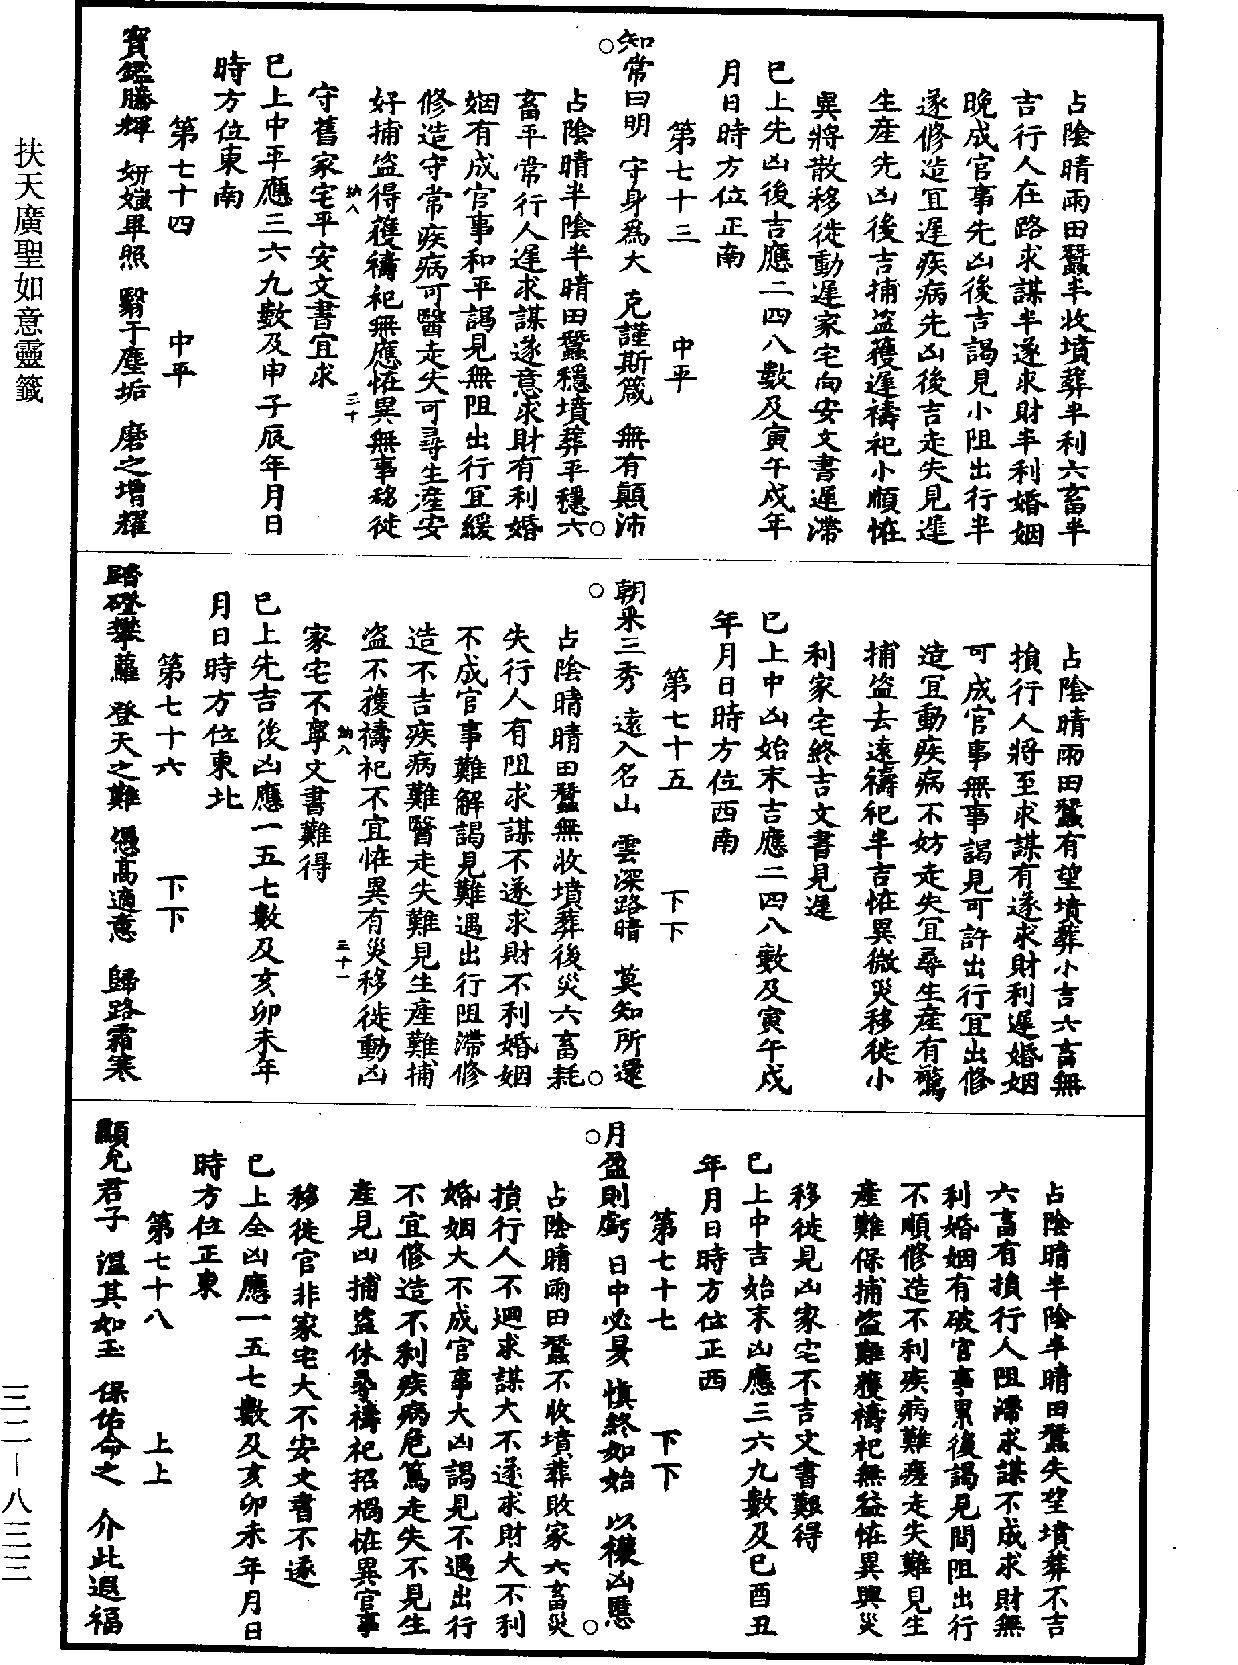 占陰晴雨田蠶半收墳葬半利六畜半
吉行人在路求謀半遂求財半利婚姻
晚成官事先凶後吉謁見小阻出行半
遂修造宜遲疾病先凶後吉走失見遲
生産先凶後吉捕盜獲遲禱祀小順怪
異將散移徙動遲家宅向安文書遲滯
巳上先凶後吉應二四八數及寅午戌年
月日時方位正南
第七十三　中平
知常曰明　守身爲大　克謹斯箴　無有顛沛
占陰晴半陰半晴田蠶穩墳葬平穩六
畜平常行人遲求謀遂意求財有利婚
姻有成官事和平謁見無阻出行宜緩
修造守常疾病可醫走失可尋生産安
好捕盜得獲禱祀無應怪異無事移徙
守舊家宅平安文書宜求
巳上中平應三六九數及申子辰年月日
時方位東南
第七十四　中平
寶鑑騰輝　妍媸畢照　翳于塵垢　磨之增耀
占陰晴雨田蠶有望墳葬小吉六畜無
損行人將至求謀有遂求財利遲婚姻
可成官事無事謁見可許出行宜出修
造宜動疾病不妨走失宜尋生産有驚
捕盜去遠禱祀半吉怪異微災移徙小
利家宅終吉文書見遲
巳上中凶始末吉應二四八數及寅午戌
年月日時方位西南
第七十五　下下
朝采三秀　遠入名山　雲深路暗　莫知所還
占陰晴晴田蠶無收墳葬後災六畜耗
失行人有阻求謀不遂求財不利婚姻
不成官事難解謁見難遇出行阻滯修
造不吉疾病難醫走失難見生産難捕
盜不獲禱祀不宜怪異有災移徙動凶
家宅不寧文書難得
巳上先吉後凶應一五七數及亥卯未年
月日時方位東北
第七十六　下下
踏磴攀蘿　登天之難　憑高適意　歸路霜寒
占陰晴半陰半晴田蠶失望墳葬不吉
六畜有損行人阻滯求謀不成求財無
利婚姻有破官事累後謁見間阻出行
不順修造不利疾病難瘥走失難見生
產難保捕盜難獲禱祀無益怪異興災
移徙見凶家宅不吉文書難得
巳上中吉始末凶應三六九數及巳酉丑
年月日時方位正西
第七十七　下下
月盈則虧　日中必昃　慎終如始　以禳凶慝
占陰晴雨田蠶不收墳葬敗家六畜災
損行人不迴求謀大不遂求財大不利
婚姻大不成官事大凶謁見不遇出行
不宜修造不利疾病危篤走失不見生
產見凶捕盜休尋禱祀招禍怪異官事
移徙官非家宅大不安文書不遂
巳上全凶應一五七數及亥卯未年月日
時方位正東
第七十八　上上
顯允君子　溫其如玉　保佑命之　介此遐福
納八
三十
納八
三十一
扶天廣聖如意靈籤
三二－八三三